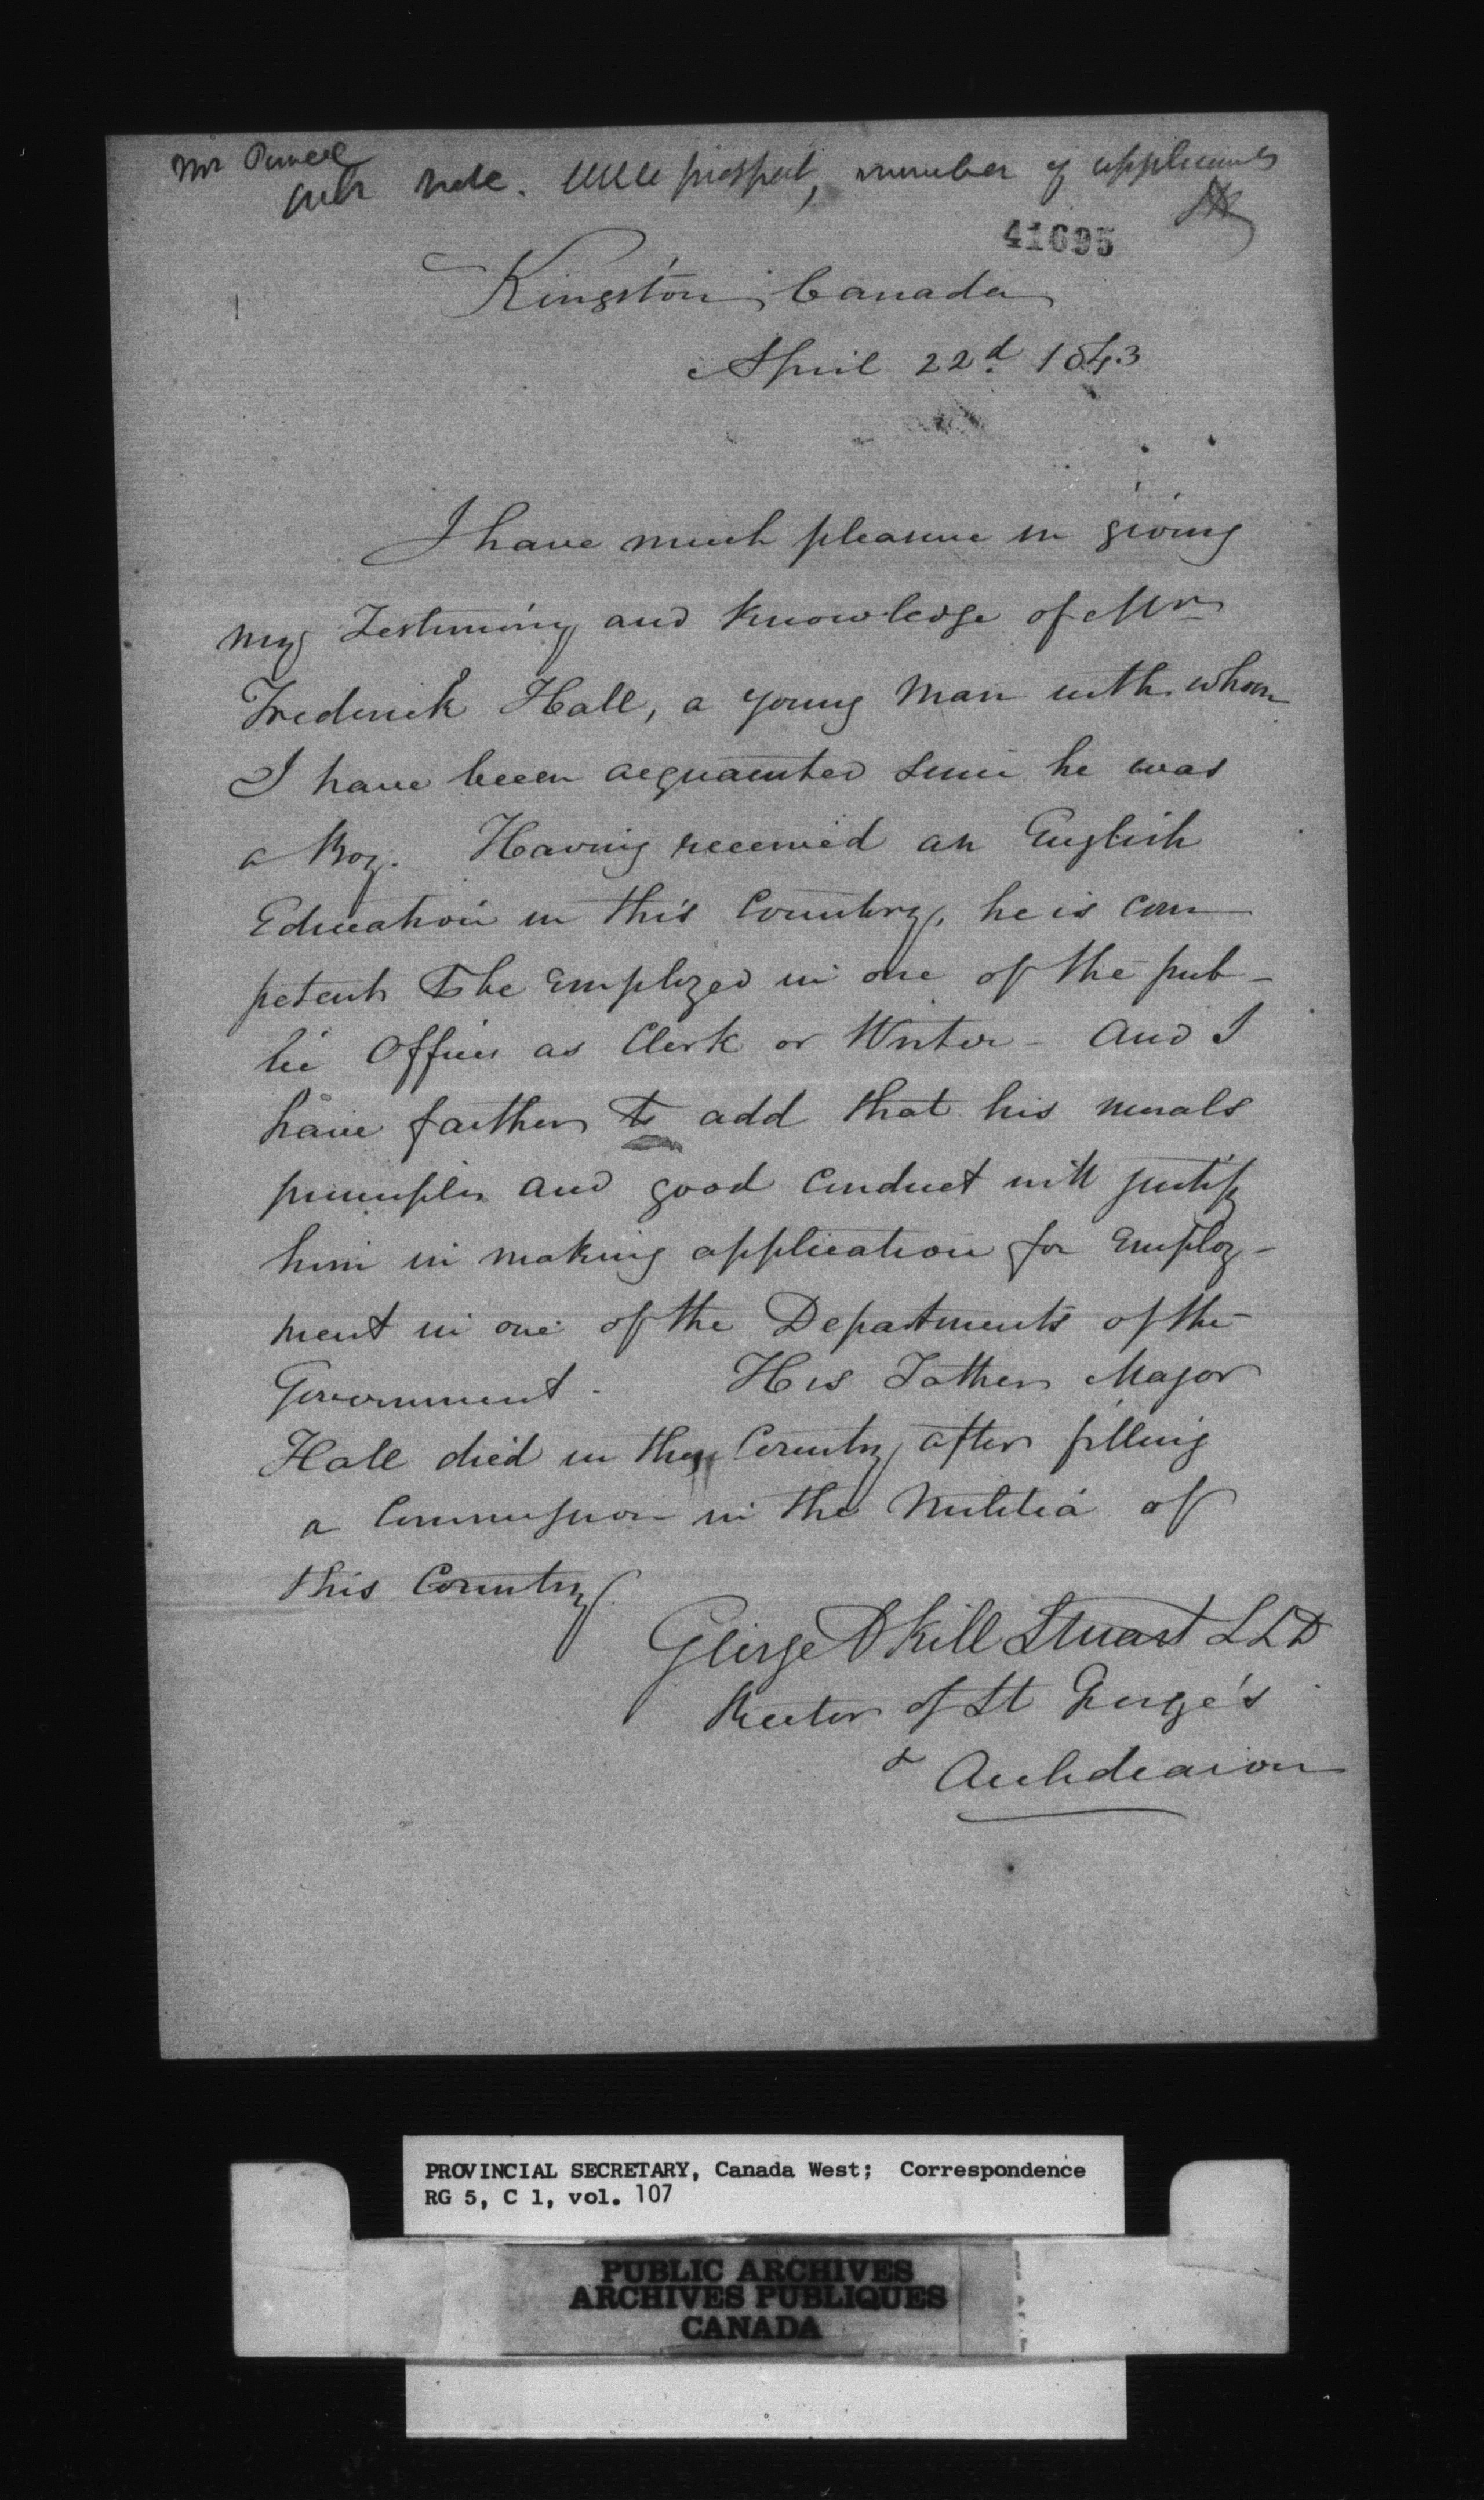 Mr Powell
note. little prospect, number of applicants
41695
Kingston, Canada
April 22d. 1843
I have much pleasure in giving
my Testimony and knowledge of Mr
Frederick Hall, a young Man with whom
I have been acquainted since he was
a Boy. Having received an English
Education in this Country, he is com
petent to be employed in one of the pub-
lic Offices as Clerk or Writer - And I
have farther to add that his morals
principles and good conduct will justify
him in making application for employ-
ment in one of the Departments of the
Government. His Father Major
Hall died in this Country, after filling
a Commission in the Militia of
this Country.
George Okill Stuart LLD
Rector of St George's
& Archdeacon
PROVINCIAL SECRETARY, Canada West; Correspondence
RG 5, C 1, vol. 107
PUBLIC ARCHIVES
ARCHIVES PUBLIQUES
CANADA